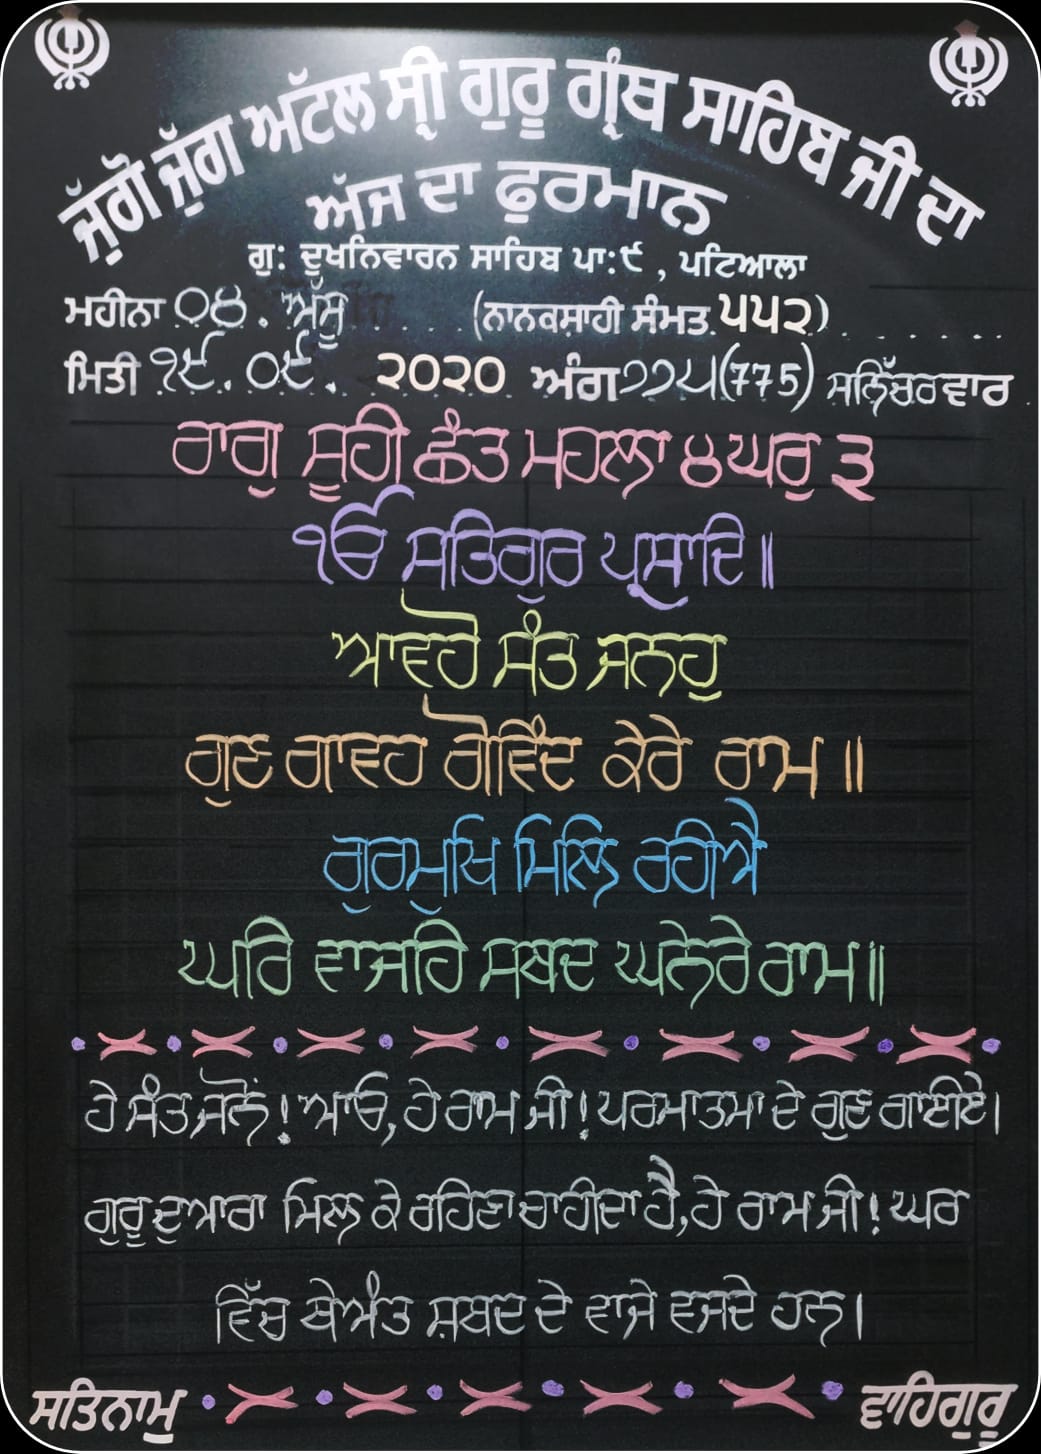 ਜੁੱਗੋ ਜੁੱਗ ਅੱਟੱਲ ਸ੍ਰੀ ਗੁਰੂ ਗ੍ਰੰਥ ਸਾਹਿਬ ਜੀ ਦਾ
ਅੱਜ ਦਾ ਫੁਰਮਾਨ
ਗੁ: ਦੁਖਨਿਵਾਰਨ ਸਾਹਿਬ ਪਾ:੯ , ਪਟਿਆਲਾ
ਮਹੀਨਾ ੦੪. ਅੱਸੂ (ਨਾਨਕਸ਼ਾਹੀ ਸੰਮਤ ੫੫੨)
ਮਿਤੀ ੧੯. ੦੯. ੨੦੨੦ ਅੰਗ ੭੭੫(775) ਸਨਿੱਚਰਵਾਰ
ਰਾਗੁ ਸੂਹੀ ਛੰਤ ਮਹਲਾ ੪ ਘਰੁ ੩
ੴ ਸਤਿਗੁਰ ਪ੍ਰਸਾਦਿ॥
ਆਵਹੋ ਸੰਤ ਜਨਹੁ
ਗੁਣ ਗਾਵਹ ਗੋਵਿੰਦ ਕੇਰੇ ਰਾਮ ॥
ਗੁਰਮੁਖਿ ਮਿਲਿ ਰਹੀਐ
ਘਰਿ ਵਾਜਹਿ ਸਬਦ ਘਨੇਰੇ ਰਾਮ॥
ਹੇ ਸੰਤ ਜਨੋਂ! ਆਓ, ਹੇ ਰਾਮ ਜੀ! ਪਰਮਾਤਮਾ ਦੇ ਗੁਣ ਗਾਈਏ।
ਗੁਰੂ ਦੁਆਰਾ ਮਿਲ ਕੇ ਰਹਿਣਾ ਚਾਹੀਦਾ ਹੈ, ਹੇ ਰਾਮ ਜੀ! ਘਰ
ਵਿੱਚ ਬੇਅੰਤ ਸ਼ਬਦ ਦੇ ਵਾਜੇ ਵਜਦੇ ਹਨ।
ਸਤਿਨਾਮੁ ਵਾਹਿਗੁਰੂ